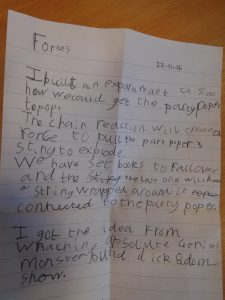 Forces
27-11-16.
I built an exparamant to see
how we could get the party poper
to pop.
The chain reaction will create a
force to pull the partypoper's
sting to explode.
We have set books to fall over
and the the last one will have
a string wrapped around it
connected to the party poper.
I got the idea from
whatching absolute Genius
monster build dick & dom
show.